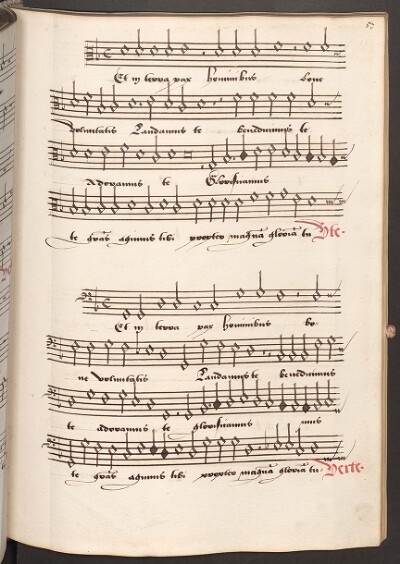 57
Et in terra pax hominibus bone
voluntatis Laudamus te benedicimus te
Adoramus te Glorificamus
te gras agimus tibi propter magnā gloriā tu Vte.
Et in terra pax hominibus bo-
ne voluntatis Laudamus te benedicimus
te adoramus te glorificamus mus
te gras agimus tibi propter magnā gloriā tu Verte.